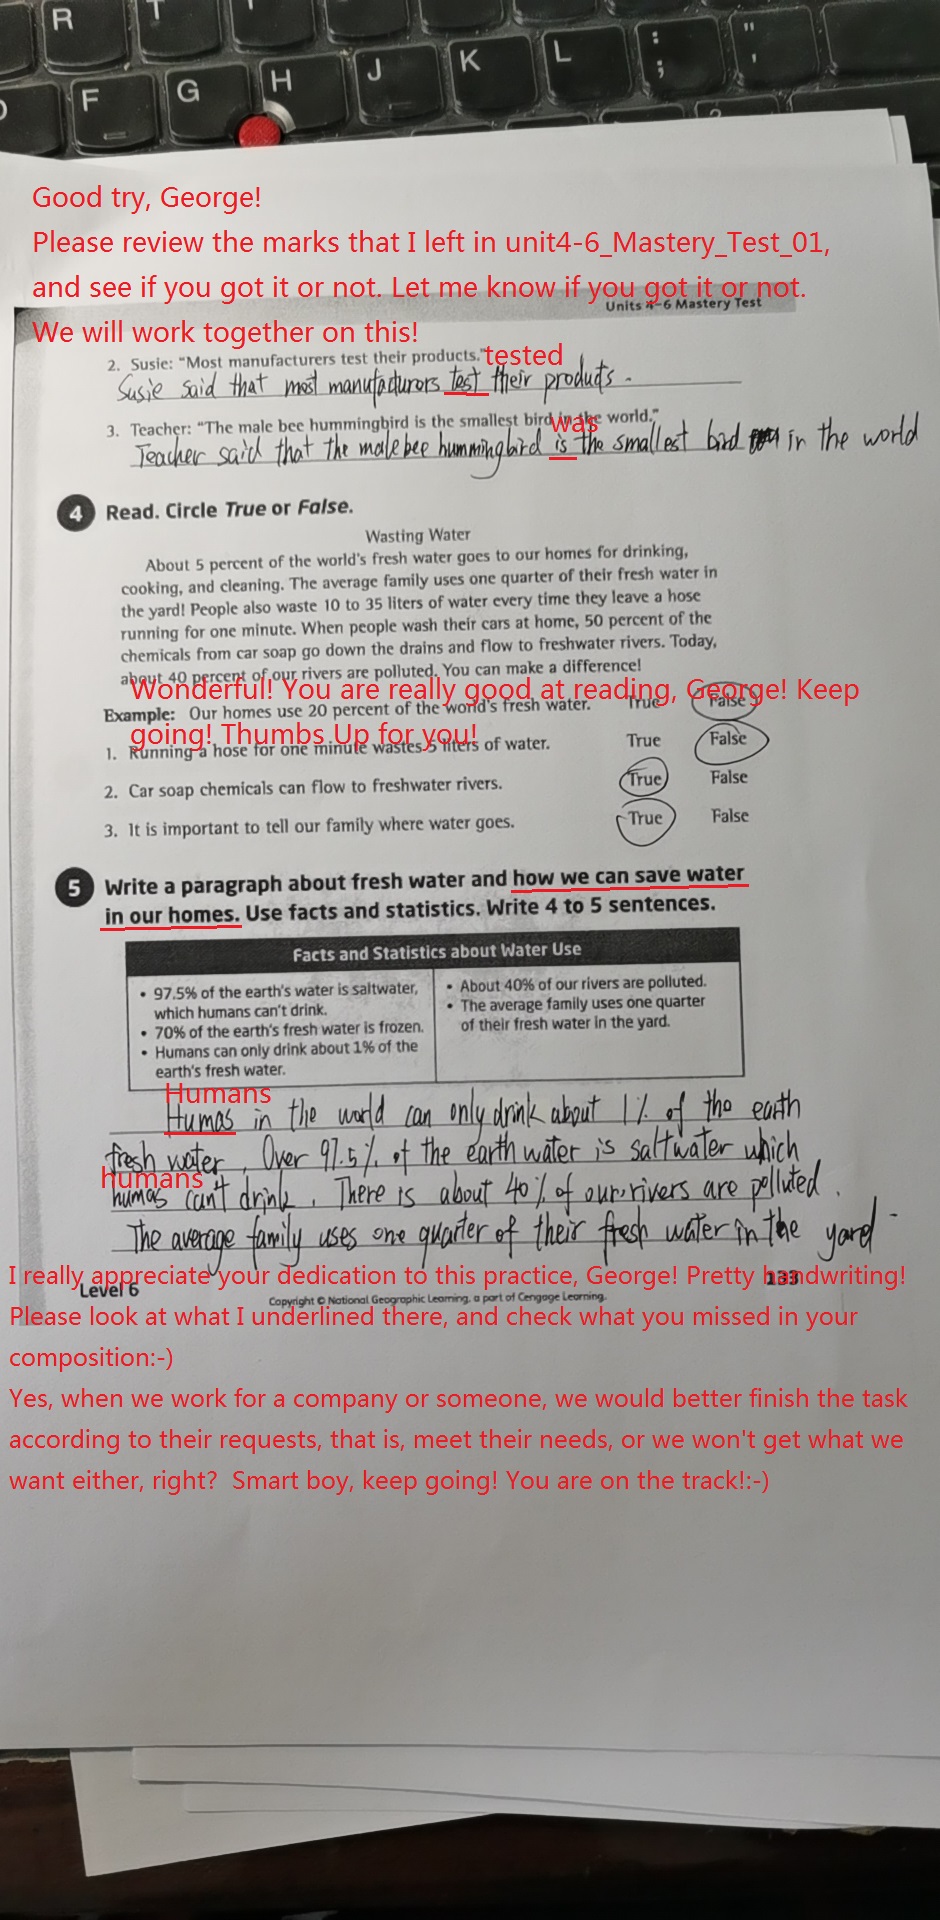 R T
: ;
" '
F G H J K L
Good try, George!
Please review the marks that I left in unit4-6_Mastery_Test_01,
and see if you got it or not. Let me know if you got it or not.
Units 4-6 Mastery Test
We will work together on this!
2. Susie: "Most manufacturers test their products."
tested
Susie said that most manufacturors test their products.
3. Teacher: "The male bee hummingbird is the smallest bird in the world."
was
Teacher said that the male bee hummingbird is the smallest bird in the world
4 Read. Circle True or False.
Wasting Water
About 5 percent of the world's fresh water goes to our homes for drinking,
cooking, and cleaning. The average family uses one quarter of their fresh water in
the yard! People also waste 10 to 35 liters of water every time they leave a hose
running for one minute. When people wash their cars at home, 50 percent of the
chemicals from car soap go down the drains and flow to freshwater rivers. Today,
about 40 percent of our rivers are polluted. You can make a difference!
Wonderful! You are really good at reading, George! Keep
going! Thumbs Up for you!
Example: Our homes use 20 percent of the world's fresh water. True False
1. Running a hose for one minute wastes 5 liters of water. True False
2. Car soap chemicals can flow to freshwater rivers. True False
3. It is important to tell our family where water goes. True False
5 Write a paragraph about fresh water and how we can save water
in our homes. Use facts and statistics. Write 4 to 5 sentences.
Facts and Statistics about Water Use
• 97.5% of the earth's water is saltwater,
which humans can't drink.
• 70% of the earth's fresh water is frozen.
• Humans can only drink about 1% of the
earth's fresh water.
• About 40% of our rivers are polluted.
• The average family uses one quarter
of their fresh water in the yard.
Humans
Humas in the world can only drink about 1% of the earth
fresh water. Over 97.5% of the earth water is saltwater which
humans
humas can't drink. There is about 40% of our rivers are polluted.
The average family uses one quarter of their fresh water in the yard.
I really appreciate your dedication to this practice, George! Pretty handwriting!
Level 6
133
Copyright © National Geographic Learning, a part of Cengage Learning.
Please look at what I underlined there, and check what you missed in your
composition:-)
Yes, when we work for a company or someone, we would better finish the task
according to their requests, that is, meet their needs, or we won't get what we
want either, right? Smart boy, keep going! You are on the track!:-)